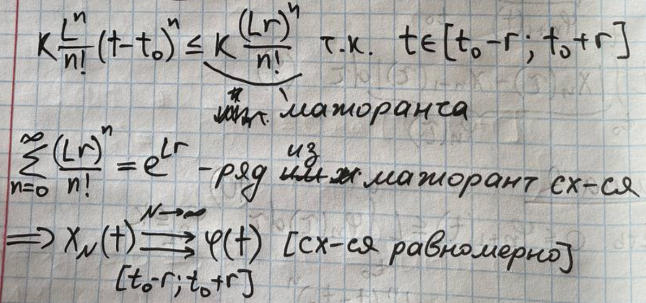 K L^n/n! (t-t₀)^n ≤ K (Lr)^n/n! т.к. t∈[t₀-r; t₀+r]
"мажоранта
∑_{n=0}^{∞} (Lr)^n/n! = e^{Lr} - ряд из мажорант сх-ся
⟹ X_N(t) ⇉^{N→∞}_{[t₀-r; t₀+r]} φ(t) [сх-ся равномерно]